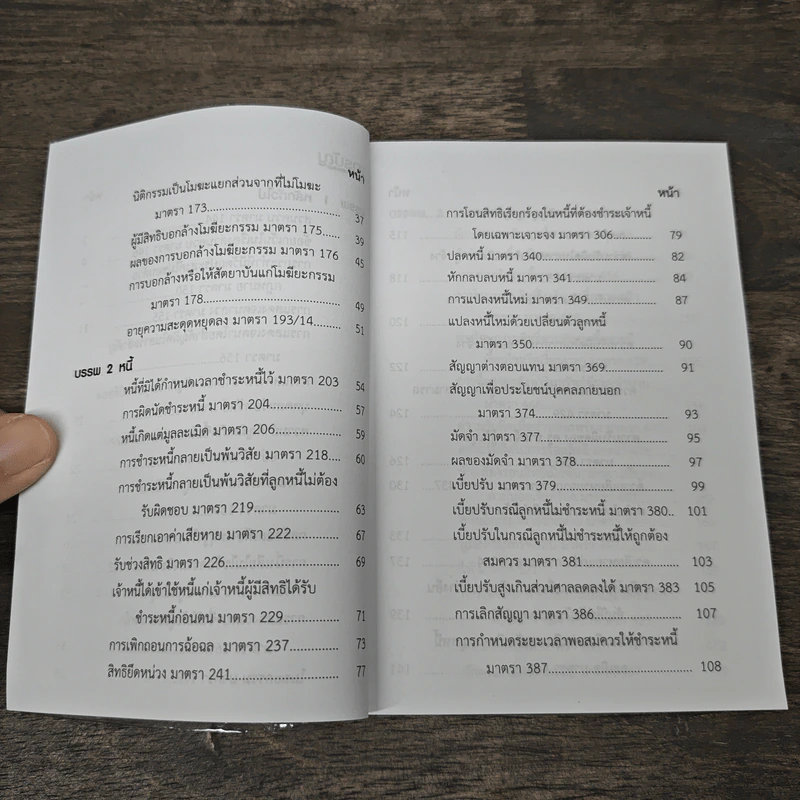 หน้า
นิติกรรมเป็นโมฆะแยกส่วนจากที่ไม่โมฆะ
มาตรา 173 37
ผู้มีสิทธิบอกล้างโมฆียะกรรม มาตรา 175 39
ผลของการบอกล้างโมฆียะกรรม มาตรา 176 45
การบอกล้างหรือให้สัตยาบันแก่โมฆียะกรรม
มาตรา 178 49
อายุความสะดุดหยุดลง มาตรา 193/14 51
บรรพ 2 หนี้
หนี้ที่มิได้กำหนดเวลาชำระหนี้ไว้ มาตรา 203 54
การผิดนัดชำระหนี้ มาตรา 204 57
หนี้เกิดแต่มูลละเมิด มาตรา 206 59
การชำระหนี้กลายเป็นพ้นวิสัย มาตรา 218 60
การชำระหนี้กลายเป็นพ้นวิสัยที่ลูกหนี้ไม่ต้อง
รับผิดชอบ มาตรา 219 63
การเรียกเอาค่าเสียหาย มาตรา 222 67
รับช่วงสิทธิ มาตรา 226 69
เจ้าหนี้ได้เข้าใช้หนี้แก่เจ้าหนี้ผู้มีสิทธิได้รับ
ชำระหนี้ก่อนตน มาตรา 229 71
การเพิกถอนการฉ้อฉล มาตรา 237 73
สิทธิยึดหน่วง มาตรา 241 77
หน้า
การโอนสิทธิเรียกร้องในหนี้ที่ต้องชำระเจ้าหนี้
โดยเฉพาะเจาะจง มาตรา 306 79
ปลดหนี้ มาตรา 340 82
หักกลบลบหนี้ มาตรา 341 84
การแปลงหนี้ใหม่ มาตรา 349 87
แปลงหนี้ใหม่ด้วยเปลี่ยนตัวลูกหนี้
มาตรา 350 90
สัญญาต่างตอบแทน มาตรา 369 91
สัญญาเพื่อประโยชน์บุคคลภายนอก
มาตรา 374 93
มัดจำ มาตรา 377 95
ผลของมัดจำ มาตรา 378 97
เบี้ยปรับ มาตรา 379 99
เบี้ยปรับกรณีลูกหนี้ไม่ชำระหนี้ มาตรา 380 101
เบี้ยปรับในกรณีลูกหนี้ไม่ชำระหนี้ให้ถูกต้อง
สมควร มาตรา 381 103
เบี้ยปรับสูงเกินส่วนศาลลดลงได้ มาตรา 383 105
การเลิกสัญญา มาตรา 386 107
การกำหนดระยะเวลาพอสมควรให้ชำระหนี้
มาตรา 387 108